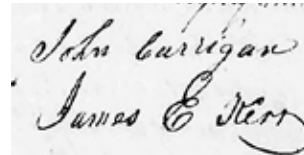 John Carrigan
James E Kerr